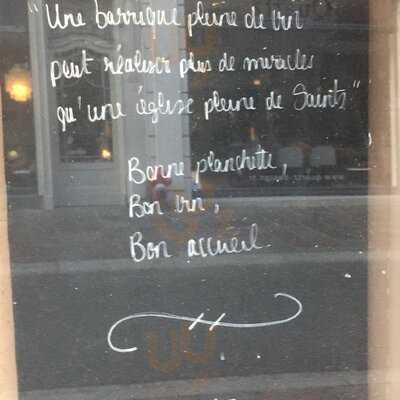 "Une barrique pleine de vin
peut réaliser plus de miracles
qu'une église pleine de Saints"
Bonne planchette,
Bon vin,
Bon accueil.